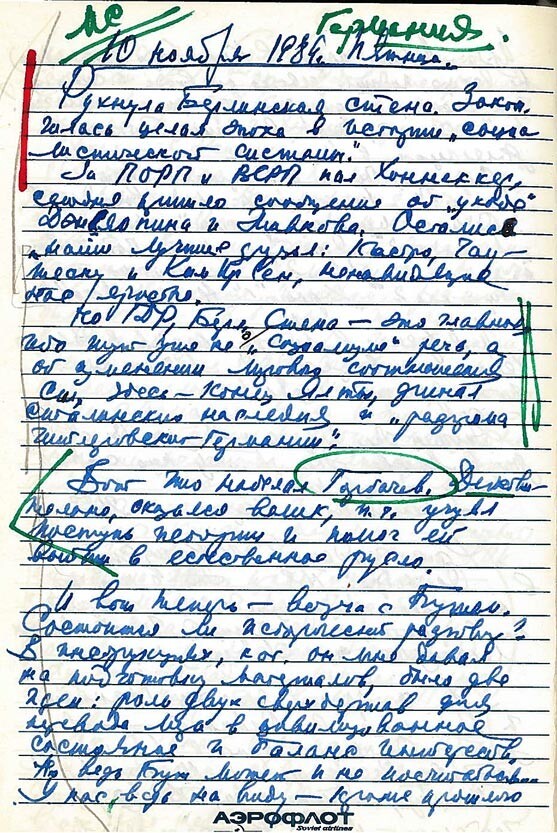 МС Германия.
10 ноября 1989. Пятница.
Рухнула Берлинская стена. Закон-
чилась целая эпоха в истории „социа
листической системы".
За ПОРП и ВСРП пал Хоннеккер,
сегодня пришло сообщение об „уходе"
Дэн Сяопина и Живкова. Остались
„наши лучшие друзья": Кастро, Чау-
шеску и Ким Ир Сен, ненавидящие
нас яростно.
Но ГДР, Берл. Стена – это главное
ибо тут уже не о „социализме" речь, а
об изменении мирового соотношения
сил, здесь – конец Ялты, финал
сталинского наследия и „разгрома
гитлеровской Германии".
Вот что наделал Горбачев. Действи-
тельно, оказался велик, т.к. учуял
поступь истории и помог ей
выйти в естественное русло.
И вот теперь – встреча с Бушем.
Состоится ли исторический разговор?
В инструкциях, кот. он мне давал
на подготовку материалов, было две
идеи: роль двух сверхдержав для
привода мира в цивилизованное
состояние и баланс интересов.
Но ведь Буш может и не посчитаться
У нас ведь на виду – кроме прошлого
АЭРОФЛОТ
Soviet airlines